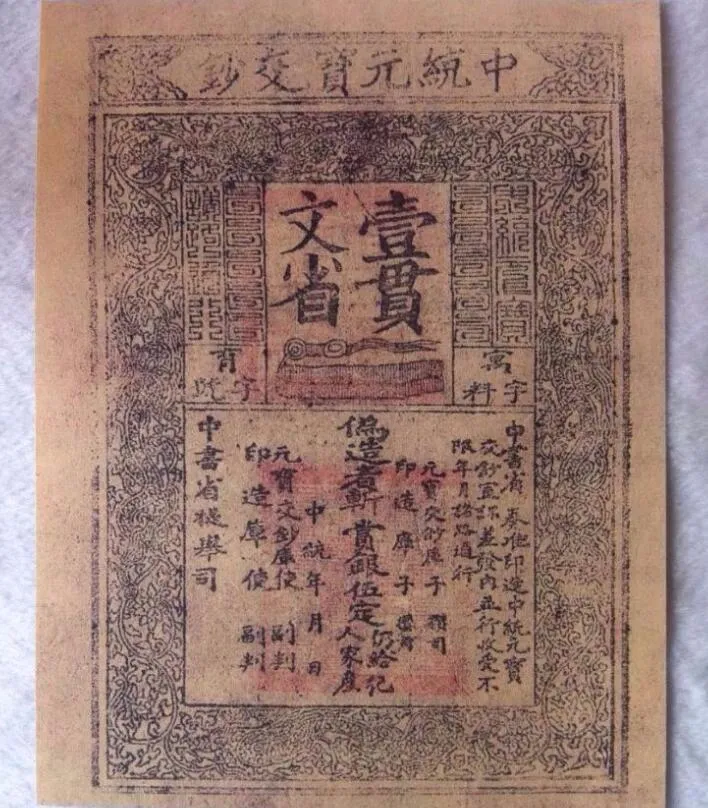 中統元寶交鈔
壹貫
文省
寓
字料
育
字號
中書省 奏准印造中統元寶
交鈔宣課差發內並行收受不
限年月諸路通行
元寶交鈔庫子 攢司
印造庫子 攢司
偽造者斬 賞銀伍定 仍給犯
人家產
中統年月日
元寶交鈔庫使 副判
印造庫使 副判
中書省提舉司